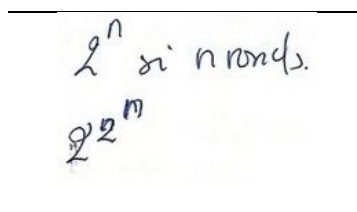 2^n si n ronds.
2^2^m